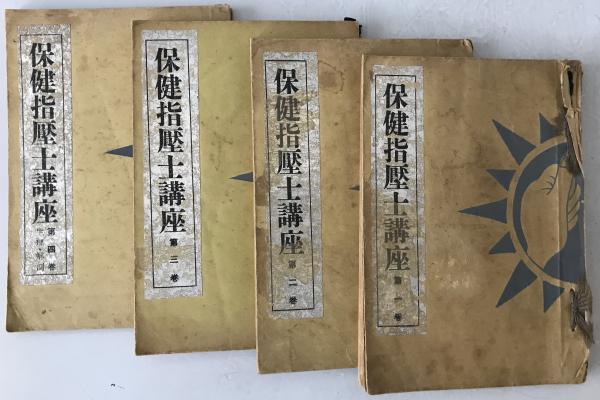 保健指壓士講座
第四卷
保健指壓士講座
第三卷
保健指壓士講座
第二卷
保健指壓士講座
第一卷